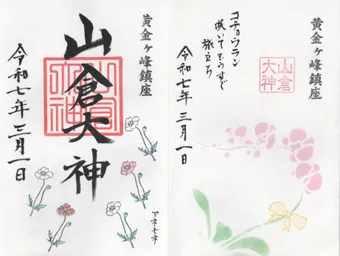 黄金ヶ峰鎮座
コチョウラン
旅立ち
山倉
大神
令和七年三月一日
黄金ヶ峰鎮座
山倉大神
令和七年三月一日
アネモネ